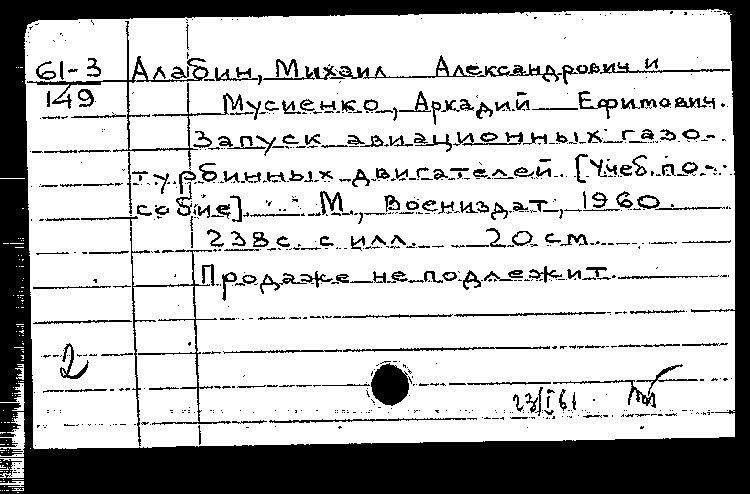 61-3
149
Алабин, Михаил Александрович и
Мусиенко, Аркадий Ефимович.
Запуск авиационных газо-
турбинных двигателей. [Учеб. по-
собие]. М., Воениздат, 1960.
238 с. с илл. 20 см.
Продаже не подлежит.
2
23/I 61